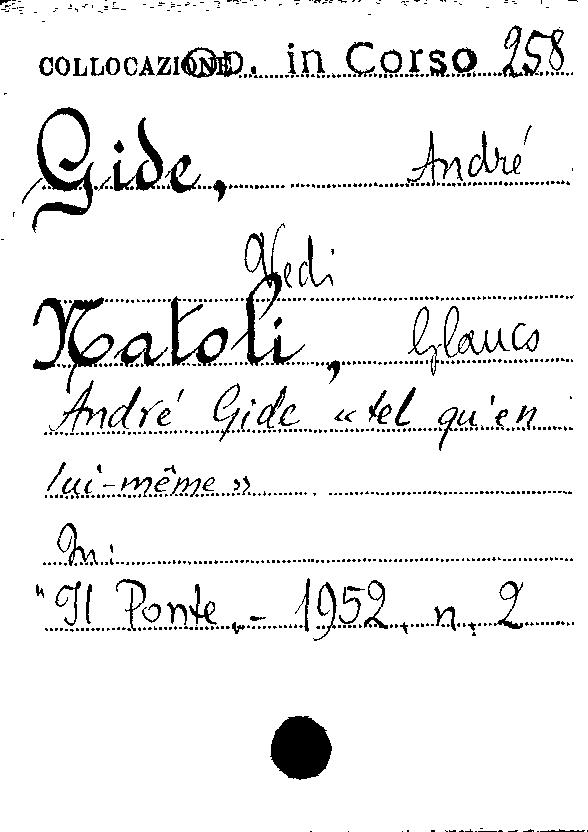 COLLOCAZIONE OD. in Corso 258
Gide, André
Vedi
Natoli, Glauco
André Gide «tel qu'en
lui-même»
In:
"Il Ponte,- 1952, n. 2